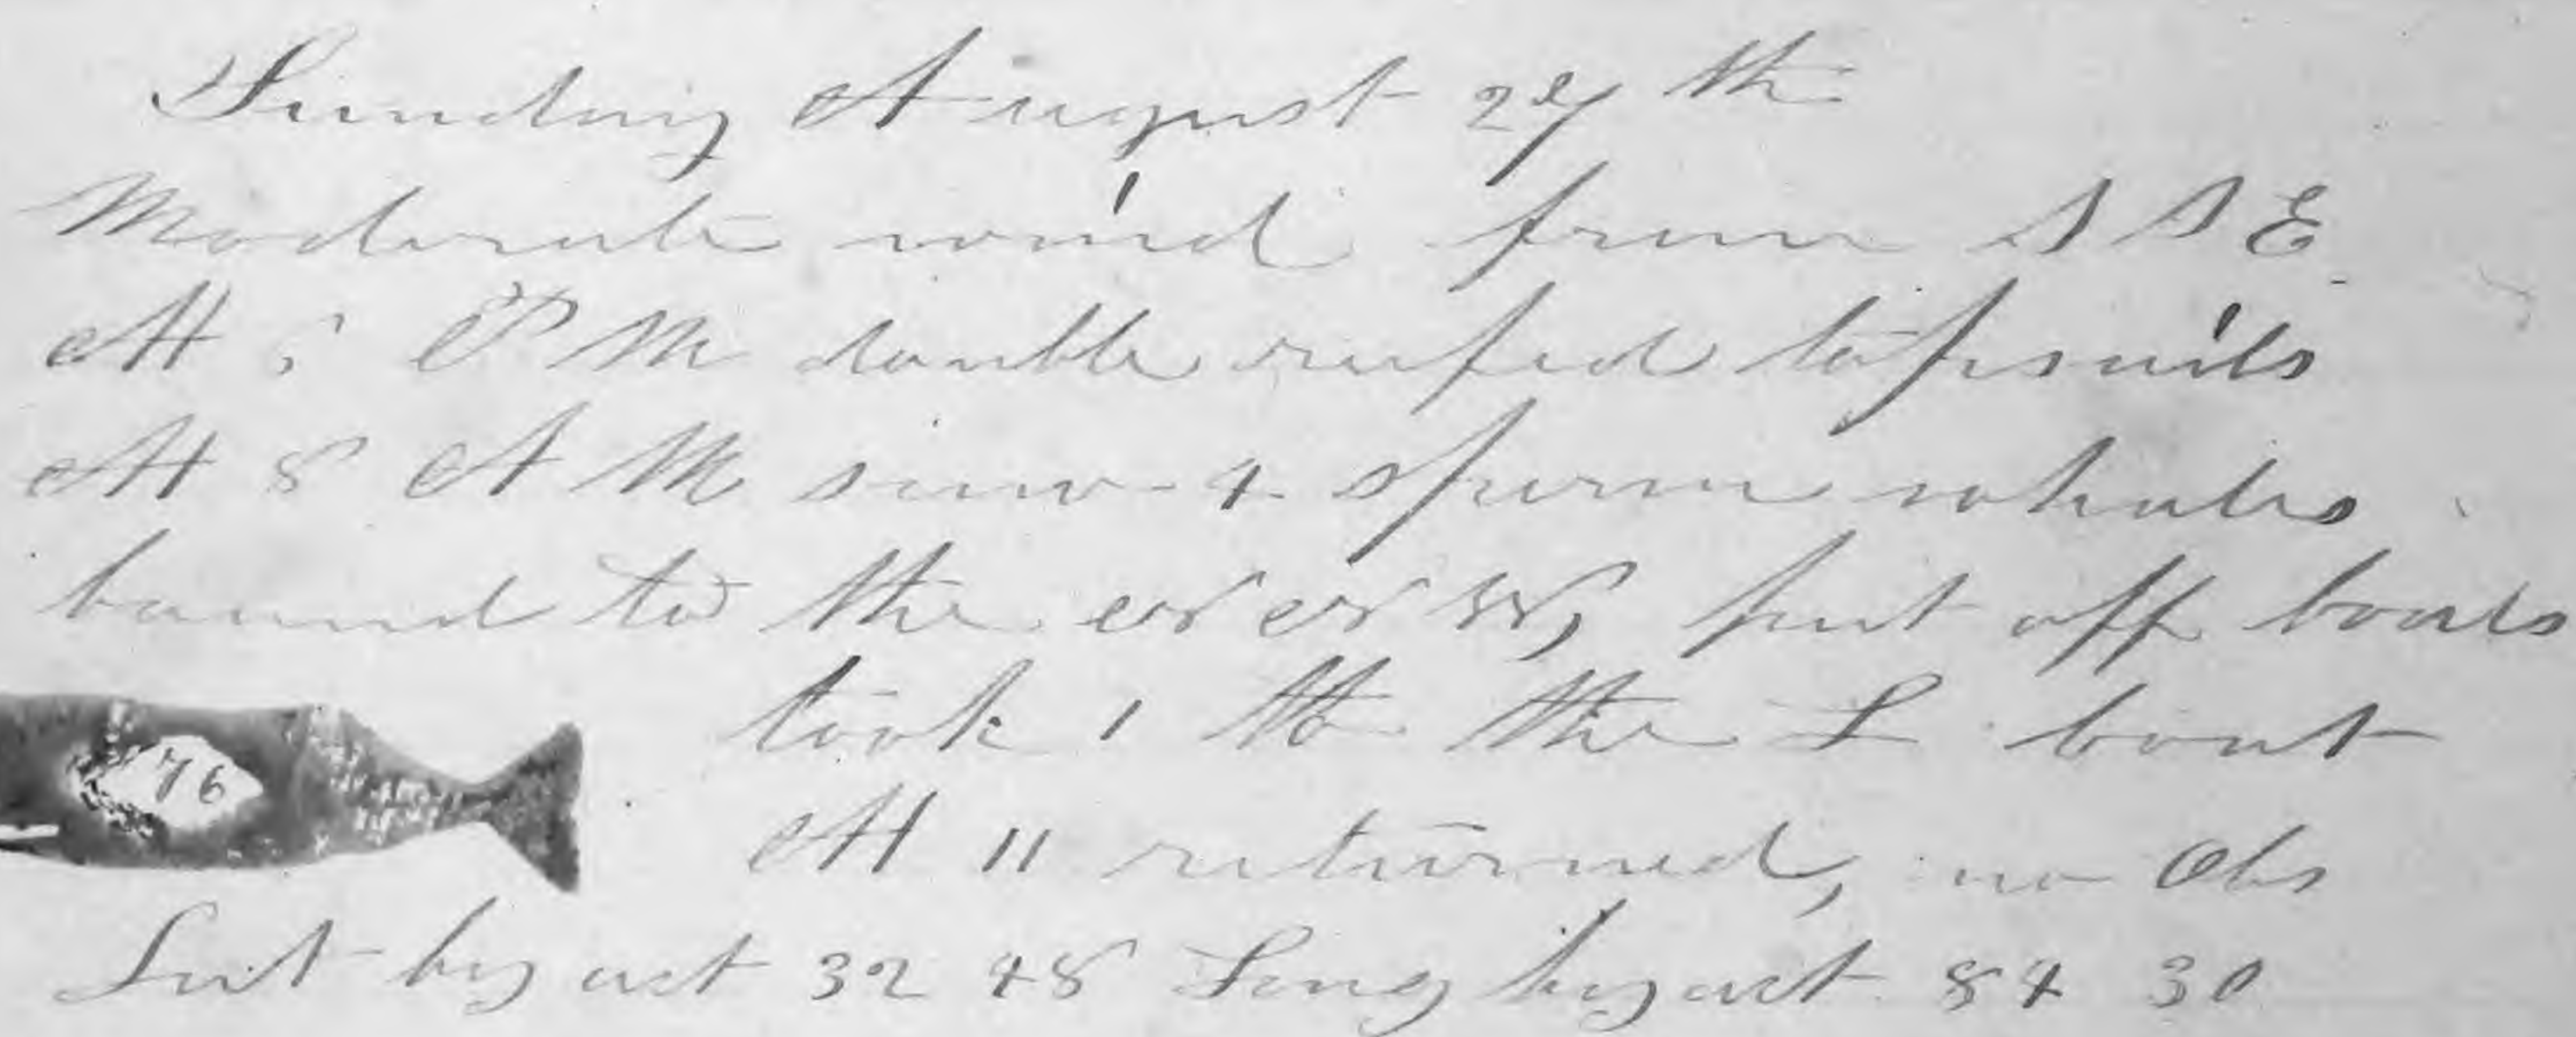 Sunday August 27 th
Moderate wind from S S E
At 5 P M double reefed topsails
At 8 A M saw 4 sperm whales
bound to the N N W, put off boats
took 1 to the L boat
76
At 11 returned, no Obs
Lat by act 32 48 Long by act 84 30